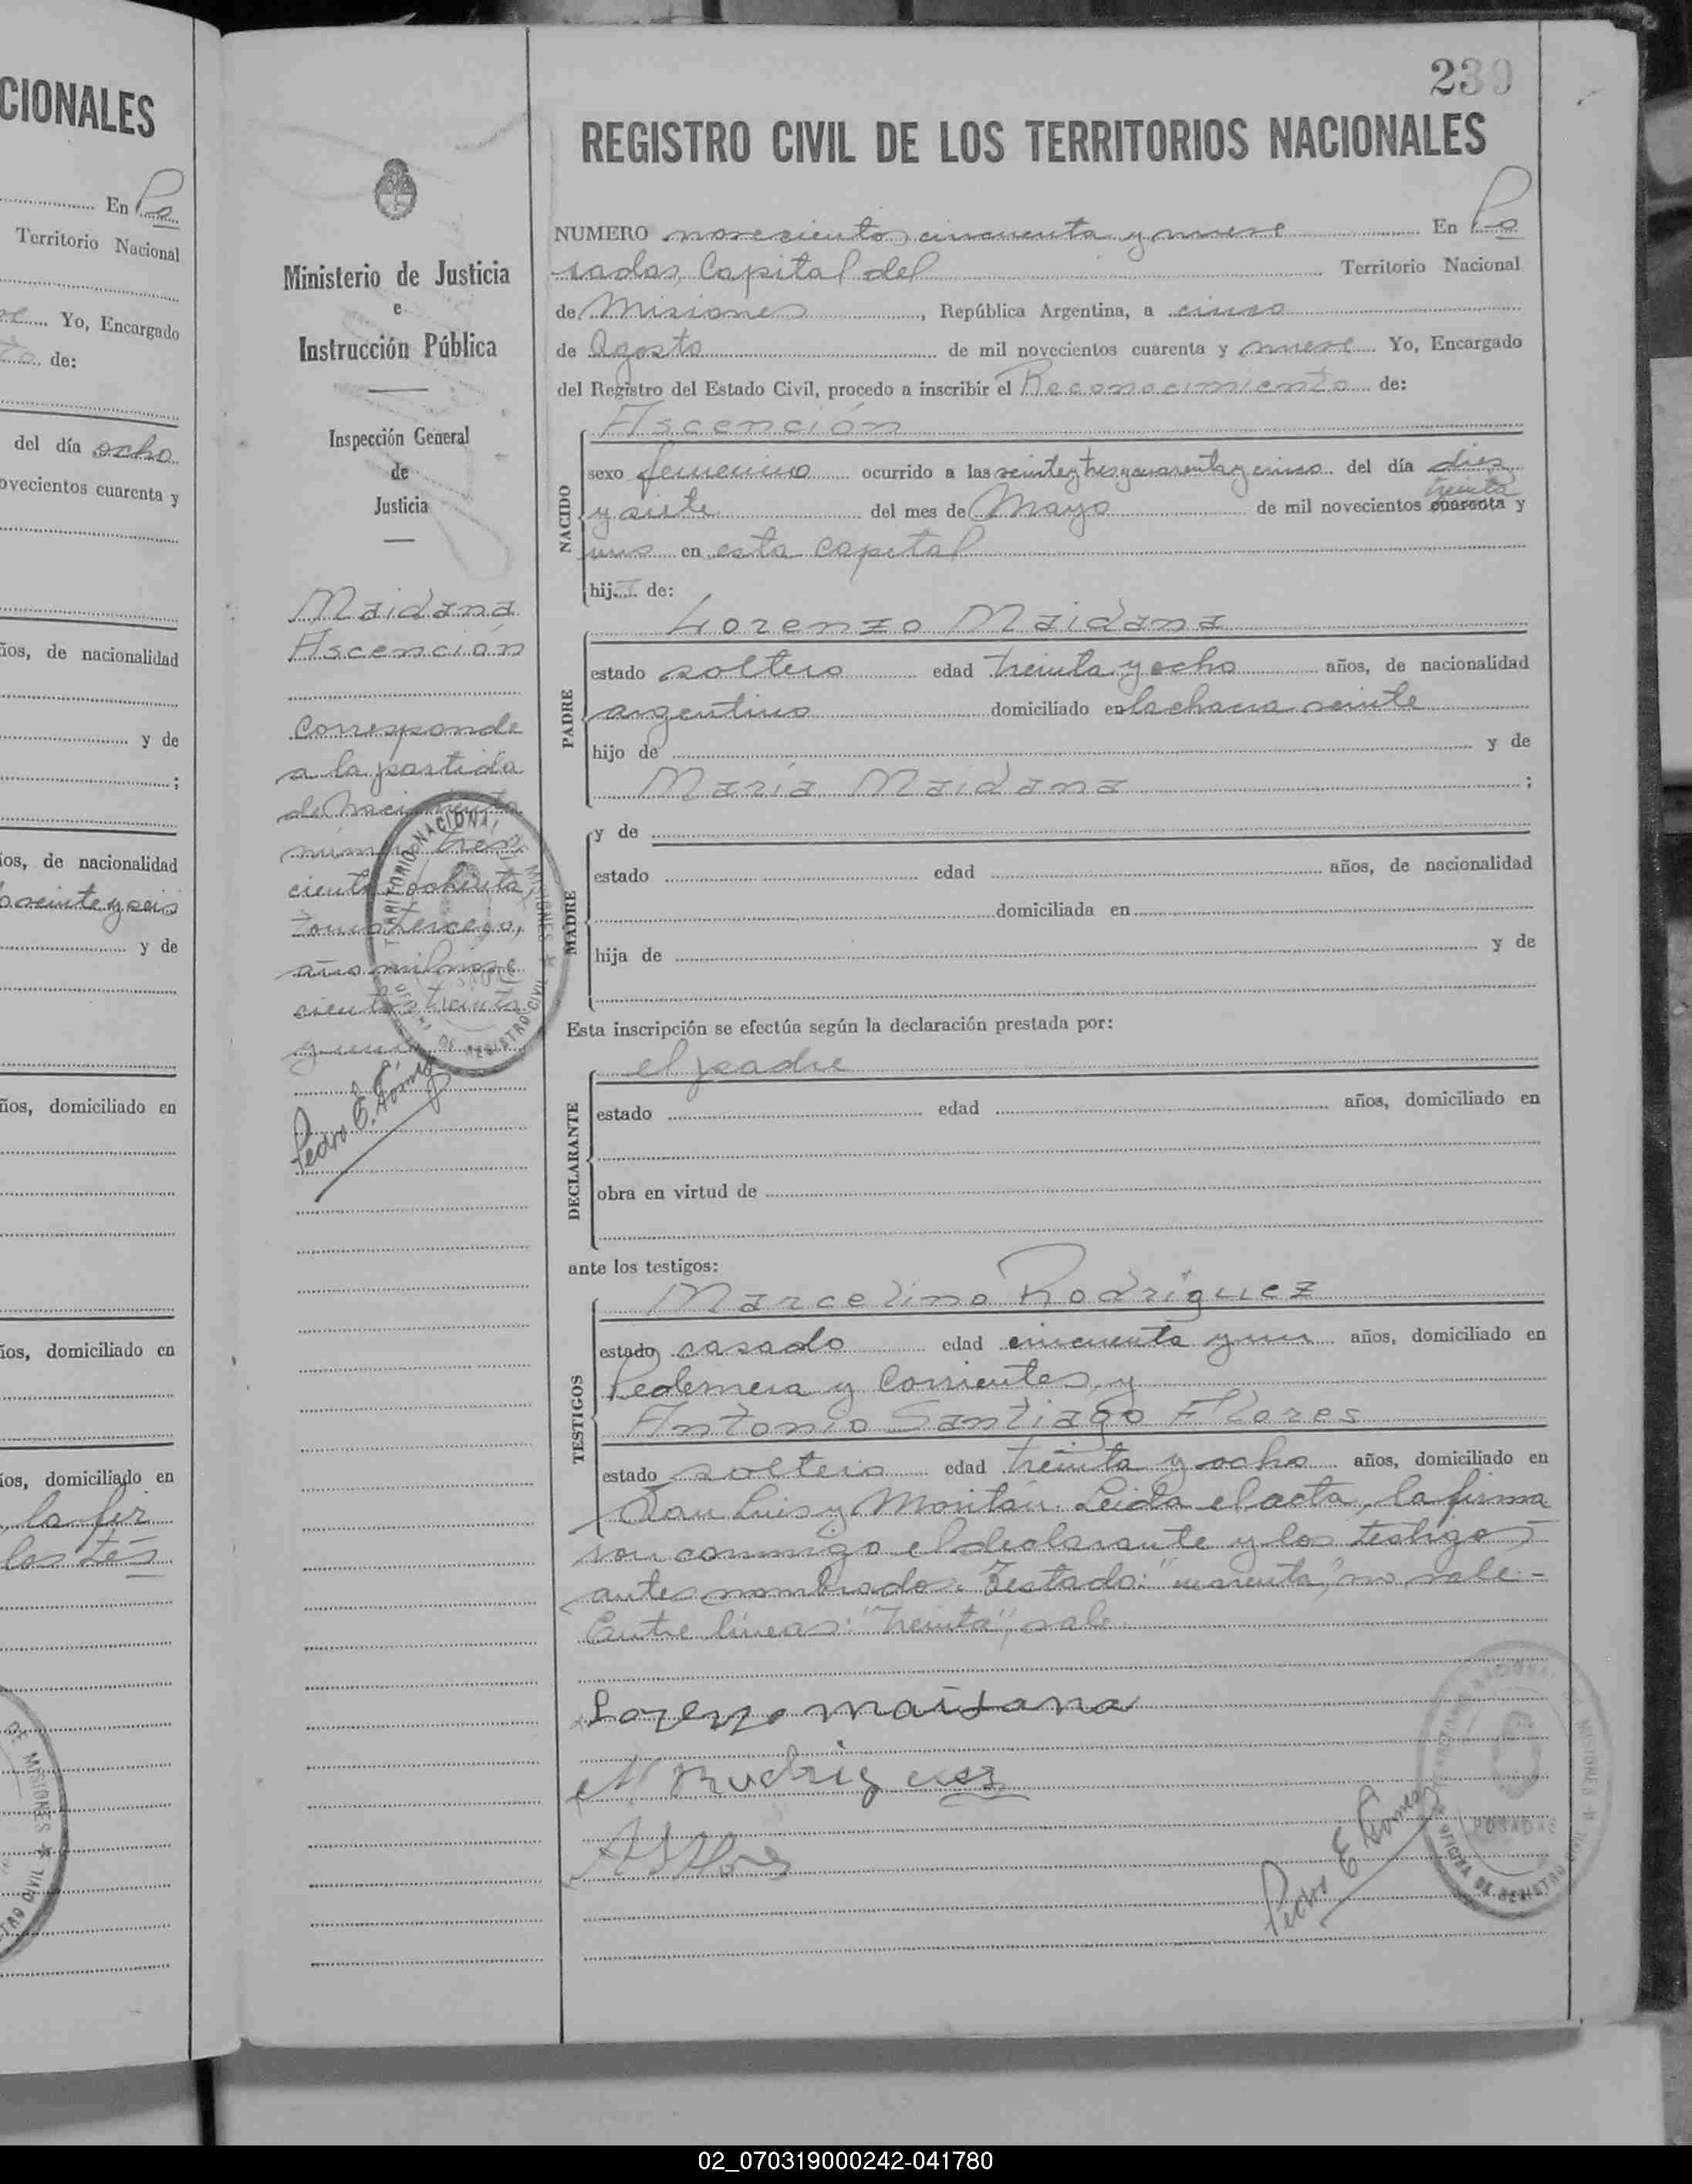 CIONALES
En Po
Territorio Nacional
Yo, Encargado
de:
del día ocho
ovecientos cuarenta y
ños, de nacionalidad
y de
;
ños, de nacionalidad
veinte y seis
y de
ños, domiciliado en
ños, domiciliado en
ños, domiciliado en
la fir
los tes
DE MISIONES ★
TRO CIVIL
Ministerio de Justicia
e
Instrucción Pública
Inspección General
de
Justicia
Maidana
Ascención
Corresponde
a la partida
de Nacimiento
número tres
cientos ochenta,
tomo tercero,
año mil nove
cientos treinta
y uno
TERRITORIO NACIONAL DE MISIONES ★
OFICINA DE REGISTRO CIVIL
Pedro E. Gómez
239
REGISTRO CIVIL DE LOS TERRITORIOS NACIONALES
NUMERO novecientos cincuenta y nueve En Po
sadas, Capital del Territorio Nacional
de Misiones, República Argentina, a cinco
de Agosto de mil novecientos cuarenta y nueve Yo, Encargado
del Registro del Estado Civil, procedo a inscribir el Reconocimiento de:
Ascención
NACIDO
sexo femenino ocurrido a las veinte y tres y cuarenta y cinco del día dies
treinta
y siete del mes de Mayo de mil novecientos cuarenta y
uno en esta capital
hija de:
PADRE
Lorenzo Maidana
estado soltero edad treinta y ocho años, de nacionalidad
argentino domiciliado en la chacra veinte
hijo de y de
María Maidana ;
MADRE
y de
estado edad años, de nacionalidad
domiciliada en
hija de y de
Esta inscripción se efectúa según la declaración prestada por:
DECLARANTE
el padre
estado edad años, domiciliado en
obra en virtud de
ante los testigos:
TESTIGOS
Marcelino Rodríguez
estado casado edad cincuenta y un años, domiciliado en
Pedernera y Corrientes, y
Antonio Santiago Flores
estado soltero edad treinta y ocho años, domiciliado en
San Luis y Moritán. Leida el acta, la firma
ron conmigo el declarante y los testigos
antes nombrados. Testado: "cuarenta", no vale.-
Entre líneas: "treinta", vale.
Lorenzo maidana
M Rudriguez
A S Flores
Pedro E Gomez
TERRITORIO NACIONAL DE MISIONES ★
POSADAS
OFICINA DE REGISTRO CIVIL
02_070319000242-041780